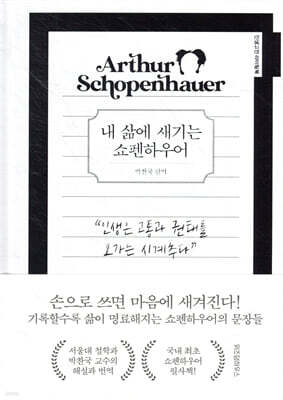 Arthur
Schopenhauer
내 삶에 새기는
쇼펜하우어
박찬국 편역
"인생은 고통과 권태를
오가는 시계추다"
손으로 쓰면 마음에 새겨진다!
기록할수록 삶이 명료해지는 쇼펜하우어의 문장들
서울대 철학과
박찬국 교수의
해설과 번역
국내 최초
쇼펜하우어
필사책!
위즈덤하우스